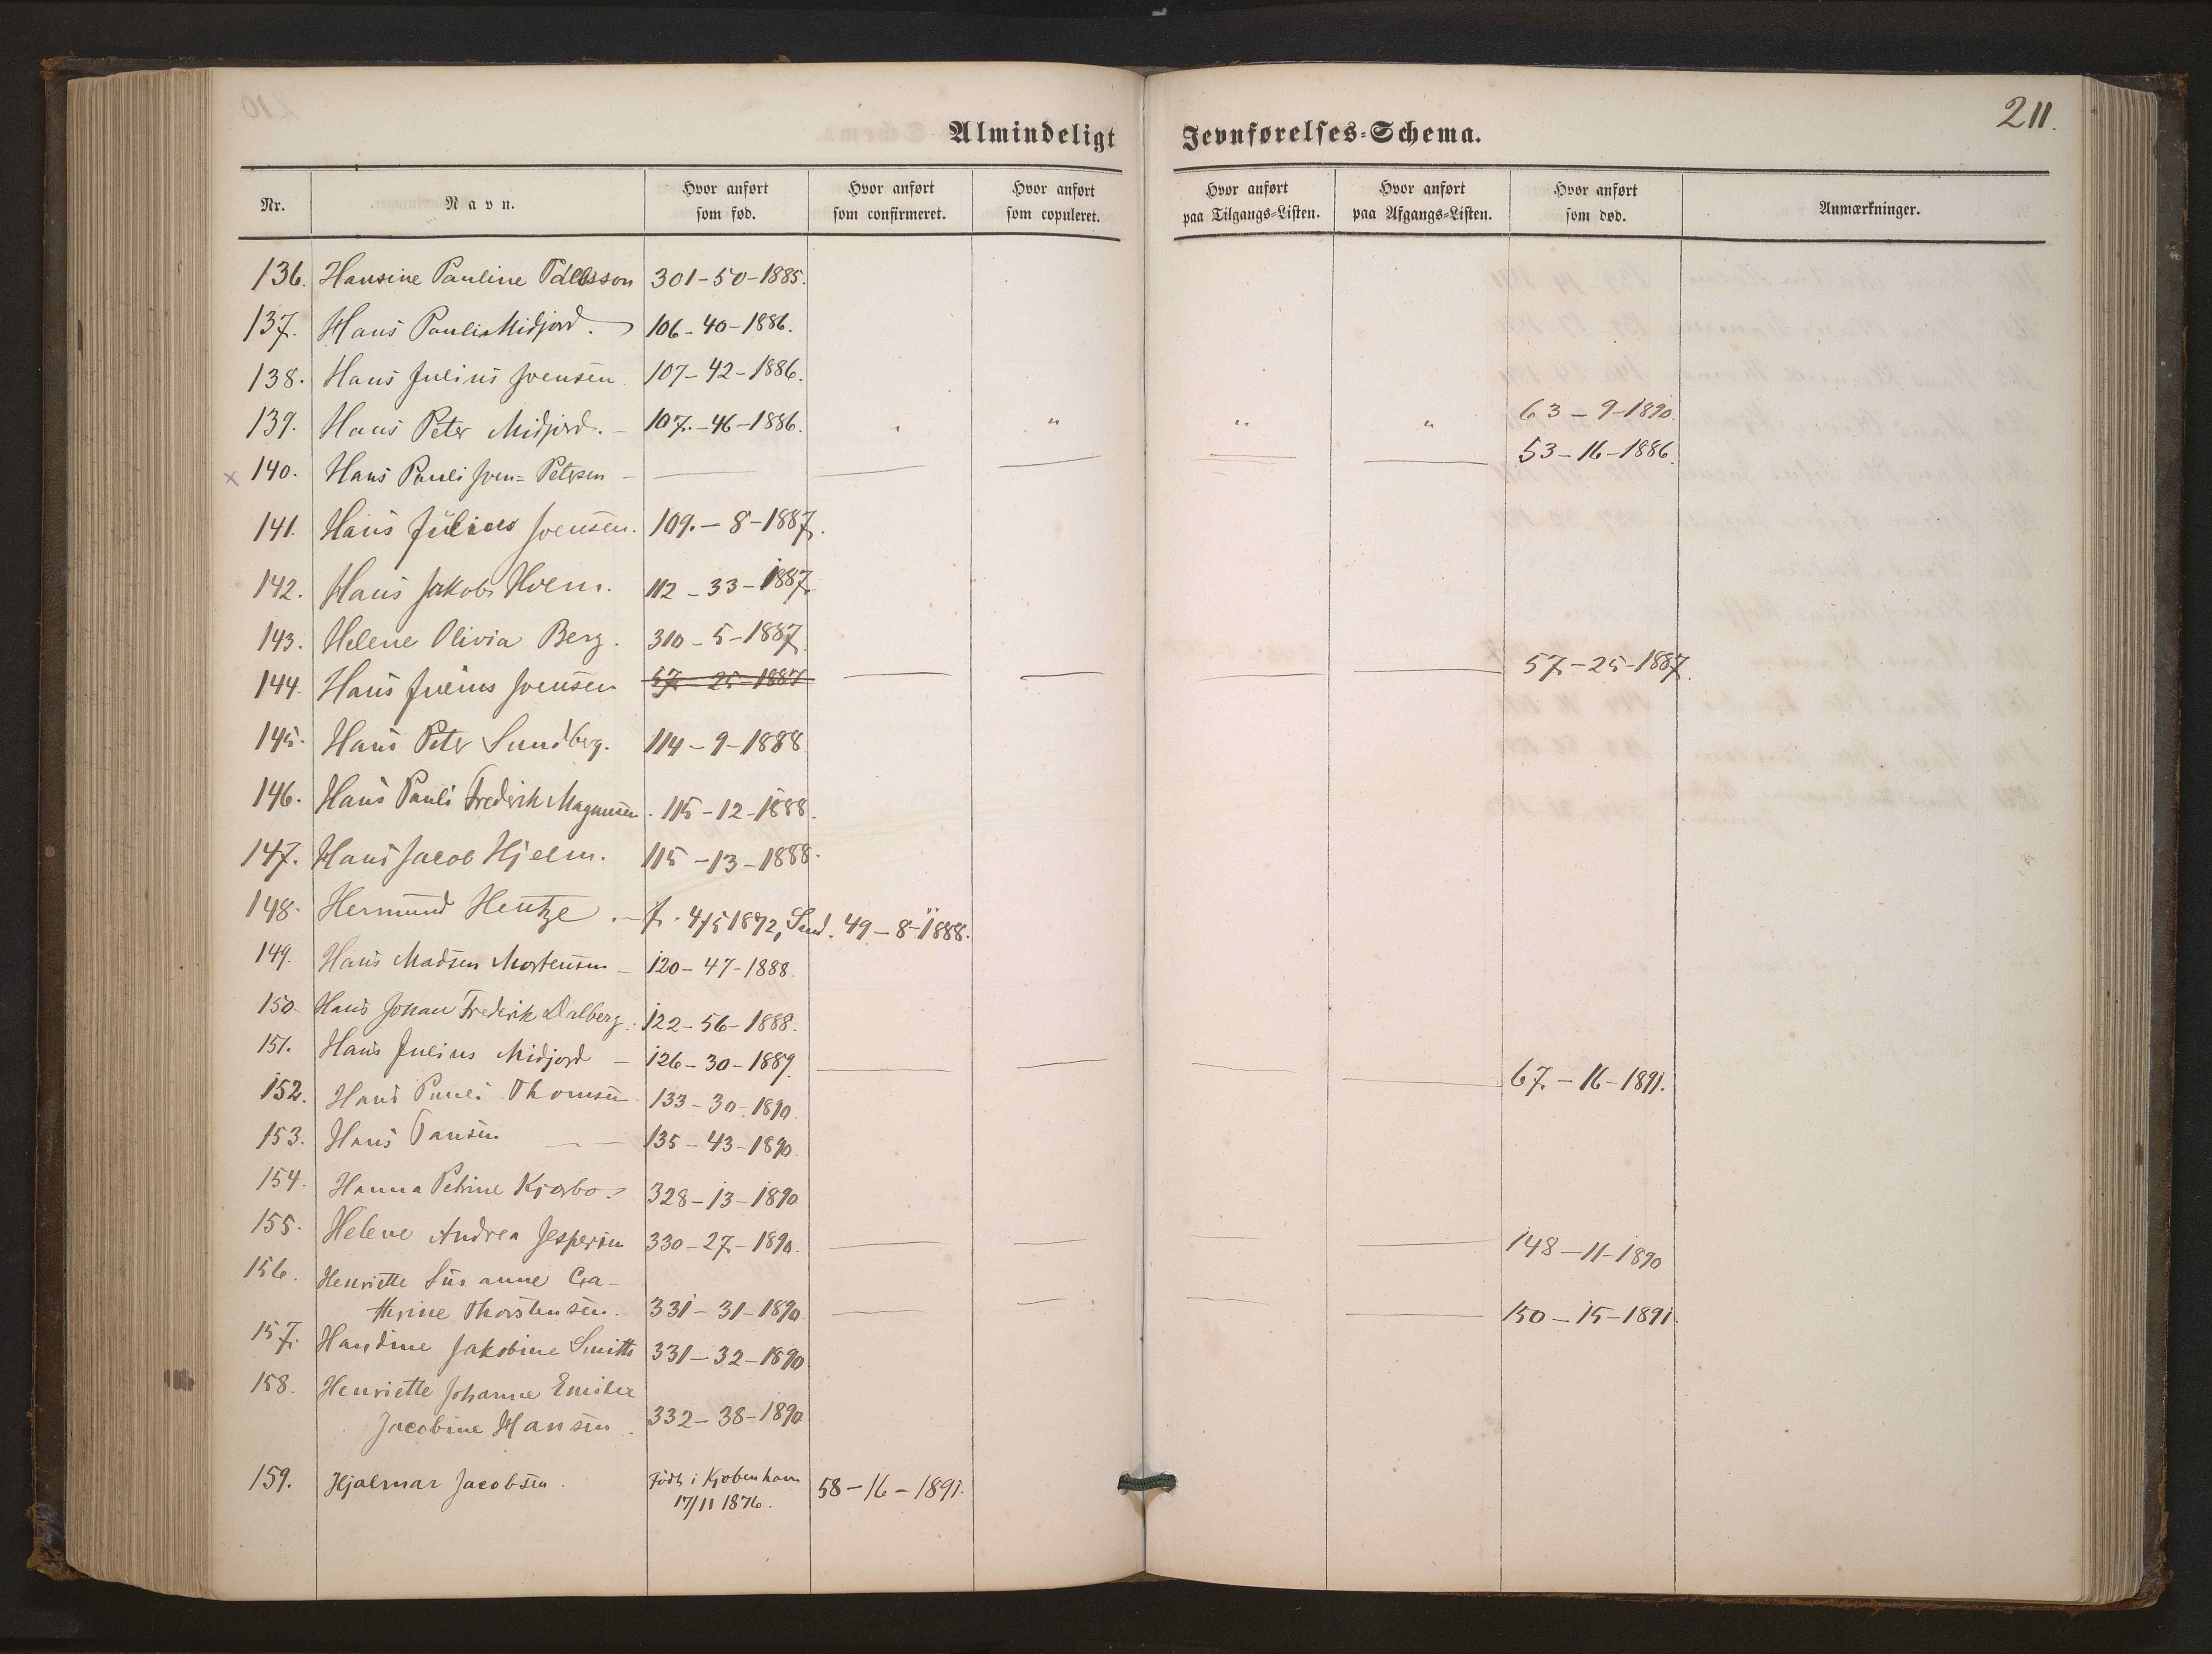 211.
Almindeligt Jevnførelses-Schema.
Nr. Navn. Hvor anført som fød. Hvor anført som confirmeret. Hvor anført som copuleret. Hvor anført paa Tilgangs-Listen. Hvor anført paa Afgangs-Listen. Hvor anført som død. Anmærkninger.
136. Hansine Pauline 301-50-1885.
137. Hans Pauli Midjord. 106-40-1886.
138. Hans Julius Joensen 107-42-1886.
139. Hans Peter Midjord. - 107.-46-1886. " " " " 63-9-1890.
× 140. Hans Pauli Joen= Petersen - — — — — — 53-16-1886.
141. Hans Julius Joensen. 109.-8-1887.
142. Hans Jakob 112-33-1887.
143. Helene Olivia Berg. 310-5-1887.
144. Hans Julius Joensen 57-25-1887 — — — — 57-25-1887.
145. Hans Peter Sundberg. 114-9-1888
146. Hans Pauli Fredrik Magnussen. 115-12-1888.
147. Hans Jacob Hjelm. 115-13-1888.
148. Hermund Hentze. - f. 4/5 1872, Sand. 49-8-1888.
149. Hans Madsen Mortensen - 120-47-1888.
150. Hans Johan Frederik Dalberg. 122-56-1888.
151. Hans Julius Midjord - 126-30-1889. — — — — 67.-16-1891.
152. Hans Pauli Thomsen 133-30-1890.
153. Hans - - 135-43-1890.
154. Hanna Petrine Kjærbo. 328-13-1890
155. Helene Andrea Jespersen 330-27-1890. — — — — 148-11-1890
156. Henriette Susanne Ca-
thrine Thorstensen. 331-31-1890. — — — — 150-15-1891.
157. Handine Jakobine Smith 331-32-1890
158. Henriette Johanne Emilie
Jacobine Hansen. 332-38-1890
159. Hjalmar Jacobsen. Født i Kjøbenhavn 58-16-1891.
17/11 1876.